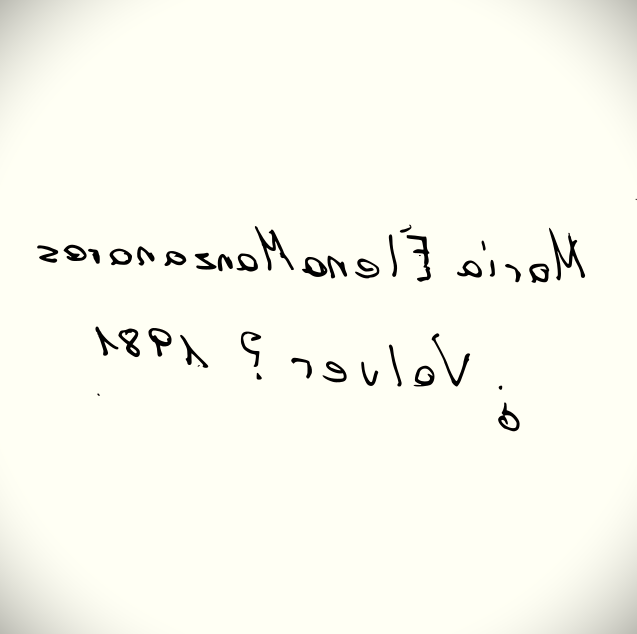 María Elena Manzanares
¿Volver? 1981